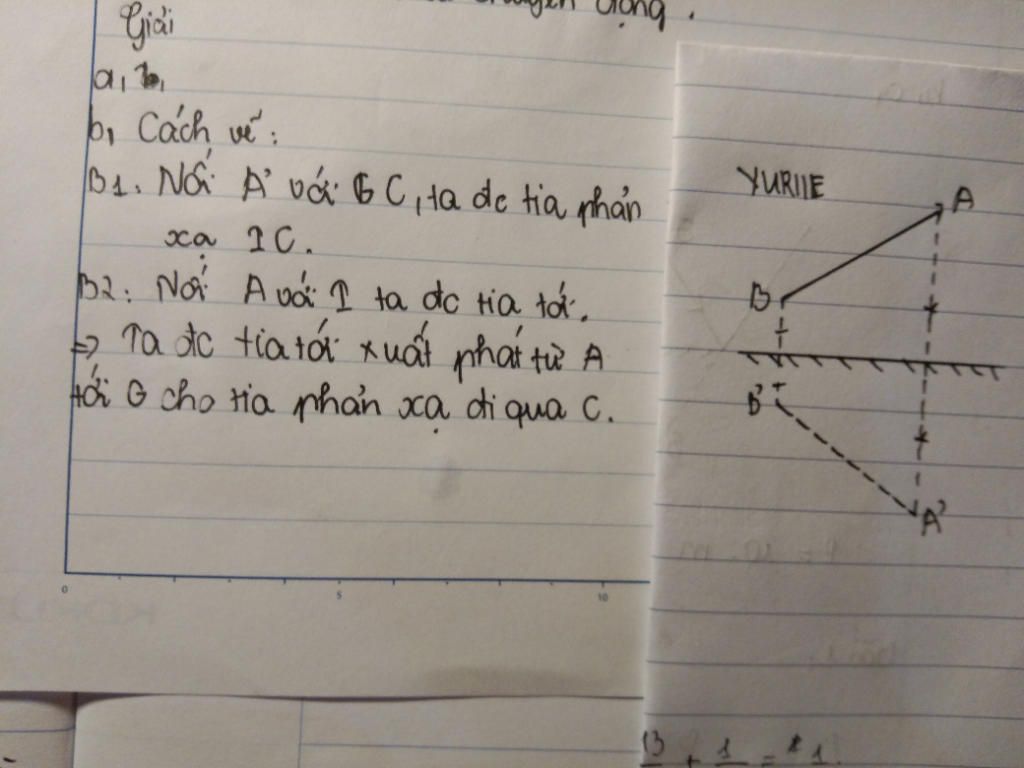 chuyển động.
Giải
a,
b, Cách vẽ:
B1. Nối A' với C, ta đc tia phản
xạ IC.
B2: Nối A với I ta đc tia tới.
=> Ta đc tia tới xuất phát từ A
tới G cho tia phản xạ đi qua C.
0 5 10
YURIIE
A
B
B'
A'